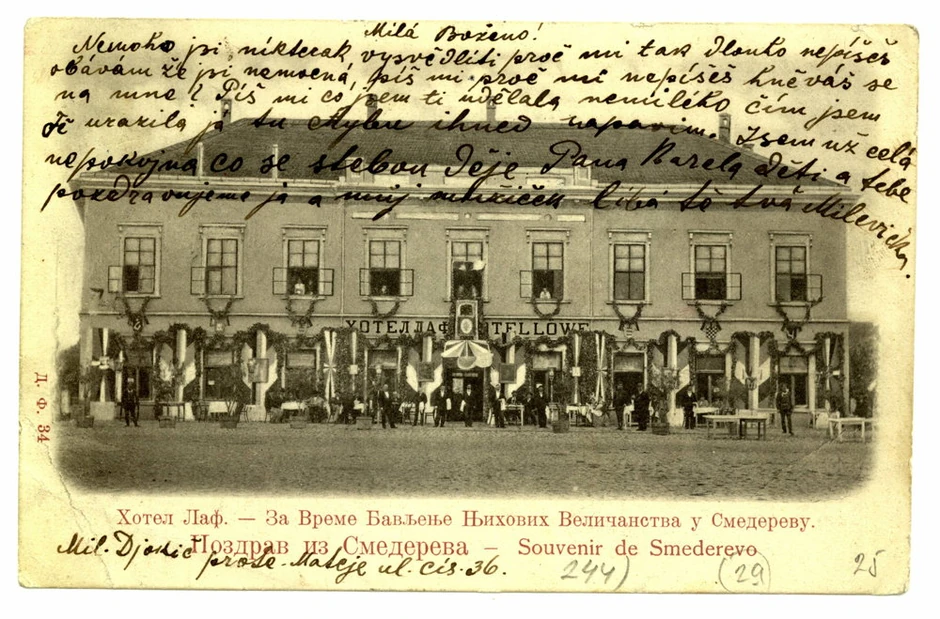 Milá Boženo!
Nemohu si nikterak vysvětliti proč mi tak dlouho nepíšeš
obávám že jsi nemocná, piš mi proč mi nepíšeš hněváš se
na mne? Piš mi co jsem ti udělala nemilého čím jsem
Tě urazila já tu chybu ihned napravím. Jsem už celá
nepokojna co se stebou děje Pana Karela děti a tebe
pozdravujeme já a můj mužíček líbá tě tvá Milevička.
ХОТЕЛ ЛАФ HOTEL LOWE
Д. Ф. 34
Хотел Лаф. — За Време Бављење Њихових Величанства у Смедереву.
Поздрав из Смедерева — Souvenir de Smederevo
Mil. Djokić prote-Mateje ul. cis. 36.
244) (29) 25